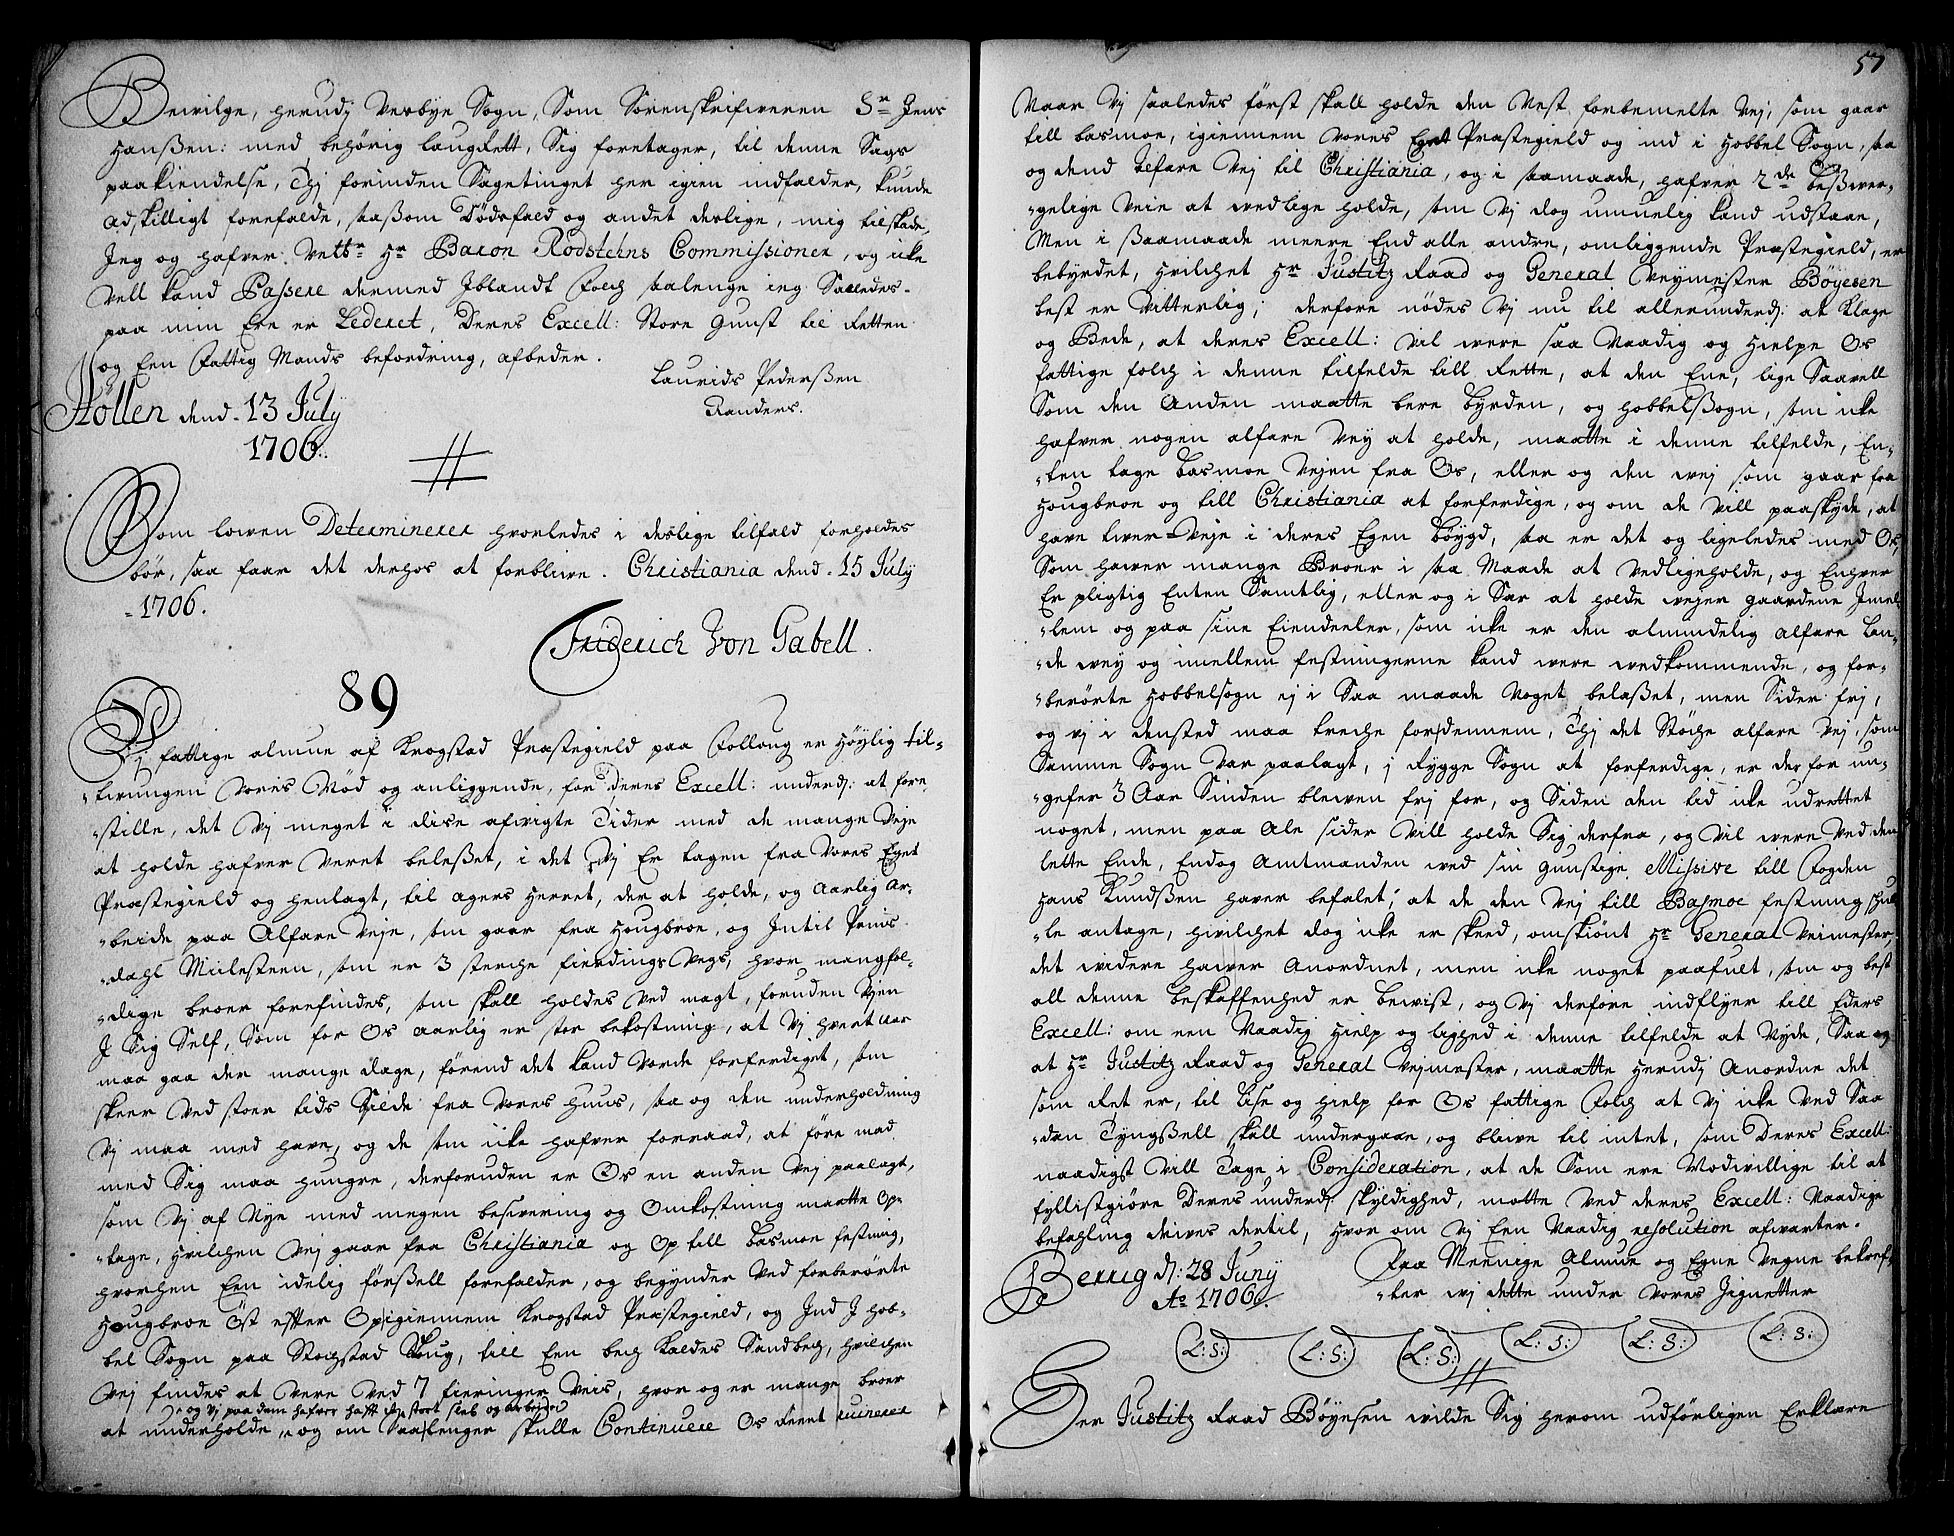 Bevilge, herudj Verbye Sogn, Som Sorenskrifveren Sr Jens
Hanßen: med behörig laugRett, Sig foretager, til denne Sags
paakiendelse, Thj forinden Sagetinget her igien indfalder, kunde
adskilligt forefalde, saaßom Dödsfald og andet deslige, mig tilskade,
Jeg og hafver Hr Baron Rodstehns Commissioner, og icke
vell kand Passere dermed Iblandt Folch saalenge ieg Saaledes
paa min Ere er Lederet, Deres Excell: Store Gunst til Retten
og Een Fattig Mands befordring, afbeder.
Laurids Pederßen
Randers.
Höllen dend 13 July
1706.
Som lowen Determinerer hvorledes i deslige tilfald forholdes
bör, saa faar det derhos at forblive. Christiania dend 15 July
1706.
Friderich Von Gabell.
89
Vj fattige almue af Krogstad Præstegield paa Follong er höylig til-
-tvungen Vores Nöd og anliggende, for Deres Excell: underd: at fore-
-stille, det Vj meget i disse afvigte Tider med de mange Veje
at holde hafver Veret beleßet, i det Vj Er tagen fra Vores Eget
Præstegield og henlagt, til Agers Herret, der at holde, og Aarlig Ar-
-beide paa Alfare Veje, som gaar fra Hougbroe, og Indtil Prins-
-dahl Miilesteen, som er 3 sterche fierdings Vegs, hvor mangfol-
-dige broer forefindes, som skall holdes Ved magt, foruden Vejen
I Sig Self, Som for Os aarlig er stor bekostning, at Vj hvert aar
maa gaa der mange dage, förend det kand Vorde forferdiget, som
skeer Ved stoer tids Spilde fra Vores huus, saa og den underholdning
Vj maa med have, og de som icke hafver forraad, at före mad
med Sig maa hungre, derforuden er Os en anden Vej paalagt,
som Vj af Nye med megen besvering og Omkostning maatte Op-
-tage, hvilchen Vej gaar fra Christiania og Op till Basmoe festning,
hvorhen Een idelig förßell forefalder, og begynder Ved forberörte
Hougbroe Öst effter Op igiennem Krogstad Præstegield, og Ind I Hob-
bel Sogn paa Stochstad Skoug, till Een bech kaldes Sandbech, hvilchen
Vej findes at Vere Ved 7 fieringer Veis, hvor og er mange broer
og Vj paa dem hafver hafft stort sleb og arbejde
at underholde, og om Saalenger skulle Continuere Os Reent ruinerer
57
Naar Vj saaledes först skall holde den Nest forbemelte Vej, som gaar
till Basmoe, igiennem Vores Eget Præstegield og ind i Hobbel Sogn, saa
og dend Alfare Vej til Christiania, og i saamaade, hafver 2de beßver-
-gelige Veie at vedlige holde, som Vj dog umuelig kand udstaae,
Men i ßaamaade meere End alle andre, omliggende Præstegield, er
bebyrdet, hvilchet Hr Justitz Raad og General Veymester Böyesen
best er Vitterlig; derfore nödes Vj nu til allerunderd: at Klage
og Bede, at deres Excell: Vil were saa Naadig og hielpe Os
fattige folch i denne tilfelde till Rette, at den Ene, lige Saavell
Som den Anden maatte bere Byrden, og Hobbelßogn, som icke
hafver nogen alfare Vey at holde, maatte i denne tilfelde, En-
-ten tage Basmoe Vejen fra Os, eller og den vej som gaar fra
Hougbroe og till Christiania at forferdige, og om de Vill paaskyde, at
have tver Veje i deres Egen Böygd, saa er det og ligeledes med Os,
Som haver mange Broer i saa Maade at Vedligeholde, og Enhver
Er pligtig Enten Samtlig, eller og i Sær at holde vejer gaardene Imel-
-lem og paa sine Eiendeeler, som icke er den almindelig alfare Lan-
-de vey og imellem festningerne kand were wedkommende, og for-
-berörte Hobbelsogn ej i Saa maade Noget belaßet, men Sider frj,
og vj i densted maa treche for dennem, Thj det Stöche alfare Vej, som
Samme Sogn Var paalagt, j Rygge Sogn at forferdige, er der for un-
-gefer 3 Aar Sinden blewen frj for, og Siden den tid icke udrettet
noget, men paa Ale sider Vill holde Sig derfra, og Vil were Ved den
lette Ende, Endog Amtmanden ved sin gunstige Missive till Fogden
Hans Knudßen haver befalet, at de den Vej till Basmoe festning skul-
-le antage, hvilchet dog icke er skeed, omskiönt Hr General Veimester
det videre haver Anordnet, men icke noget paafult, som og best
all denne beskaffenhed er bewist, og Vj derfore indflyer till Eders
Excell: om een Naadig hielp og lighed i denne tilfelde at Nyde, Saa og
at Hr Justitz Raad og General Vejmester, maatte herudj Anordne det
som Ret er, til lise og hielp for Os fattige Folch at Vj icke Ved Saa
-dan Tyngßell skall undergaae, og blive til intet, som Deres Excell:
naadigst Vill Tage i Consideration, at de Som ere Modvillige til at
fyllistgiöre Deres underd: skyldighed, motte Ved deres Excell: Naadige
befahling drives dertil, hvor om Vj Een Naadig resolution afwarter.
Paa Meenige Almue og Egne Vegne bekref-
-ter vj dette under Vores Zignetter
Berrig d: 28 Juny
Ao 1706.
L: S: L: S: L: S: L: S: L: S: L: S:
Her Justitz Raad Böyesen wilde Sig herom udförligen Erklære